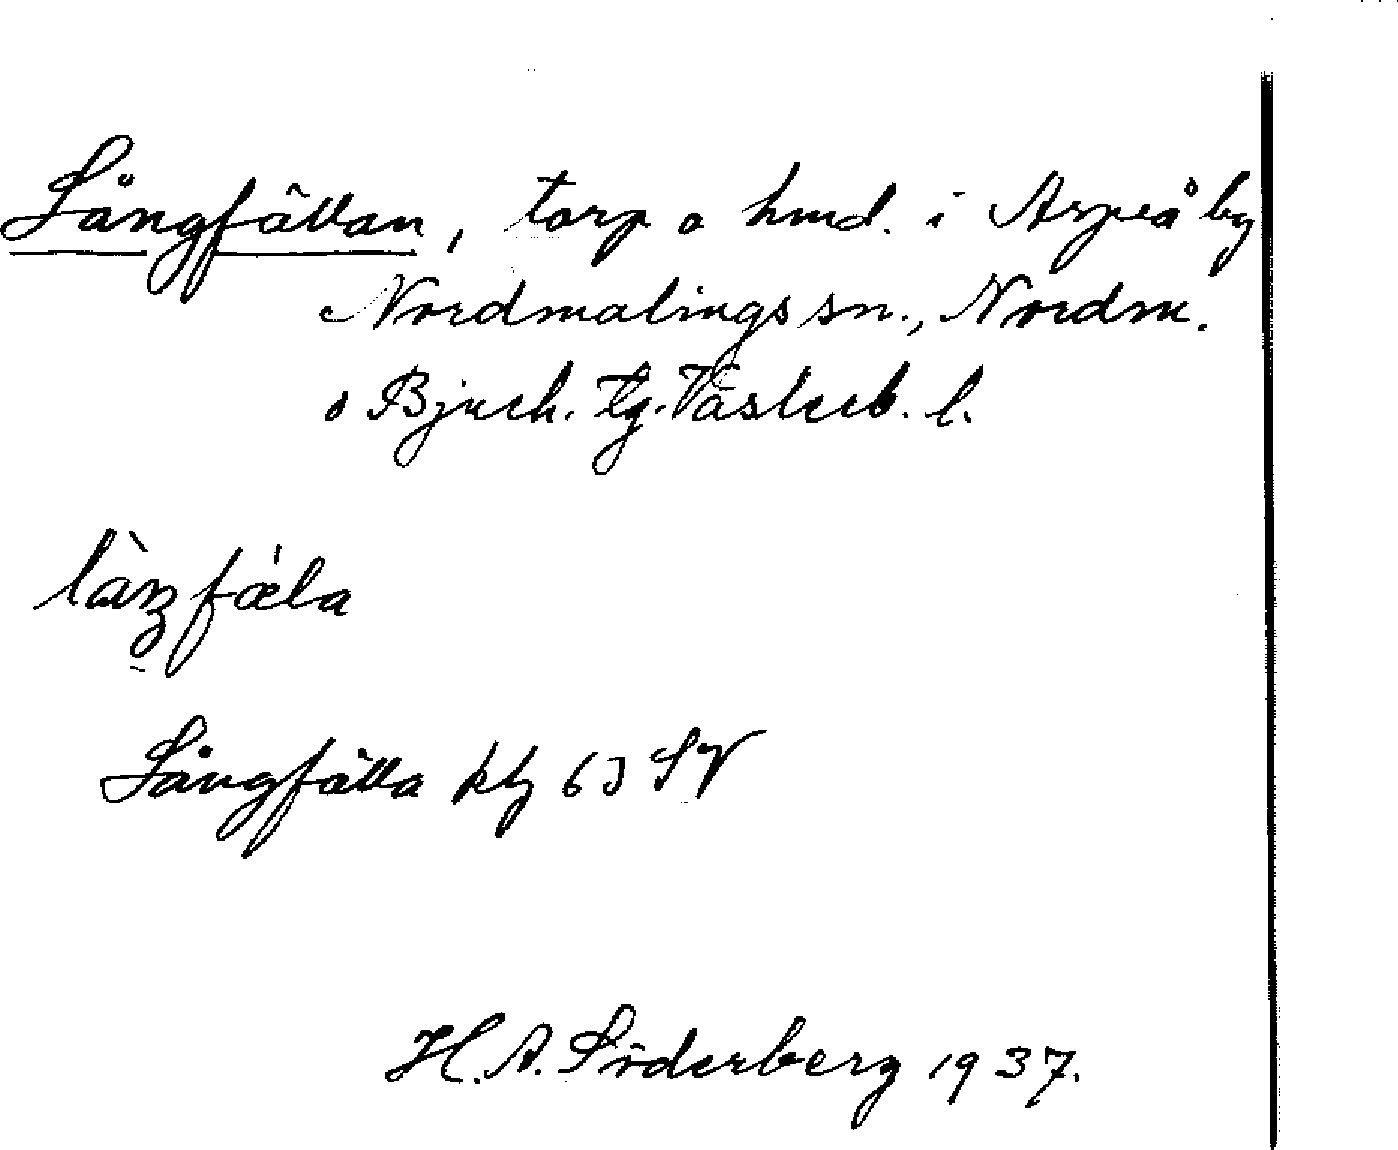 Långfällan, torp o hmd. i Aspeå by
Nordmalings sn., Nordm.
o Bjurh. tg. Västerb. l.
làŋfǽla
Långfälla ktg 63 SV
H. A. Söderberg 1937.